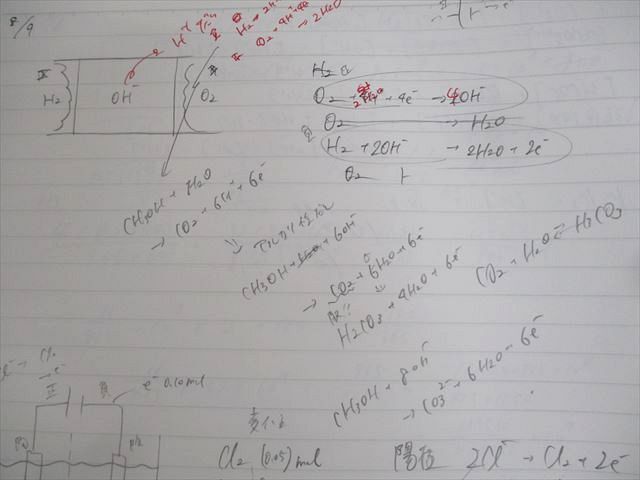 8/9
H₂ → 2H
O₂ + 4H⁺ + 4e
→ 2H₂O
H₂
OH⁻
O₂
H₂
O₂ + 2H₂O + 4e⁻ → 4OH⁻
O₂ → H₂O
負 H₂ + 2OH⁻ → 2H₂O + 2e⁻
O₂ H
CH₃OH + H₂O
→ CO₂ + 6H⁺ + 6e⁻
CH₃OH + H₂O + 6OH⁻
→ CO₂ + 6H₂O + 6e⁻
H₂CO₃ + 4H₂O + 6e⁻
CO₂ + H₂O ⇄ H₂CO₃
CH₃OH + 8OH⁻
→ CO₃²⁻ + 6H₂O + 6e⁻
正
負
e⁻ 0.10mol
Cl₂ (0.05) mol
陽極 2Cl⁻ → Cl₂ + 2e⁻